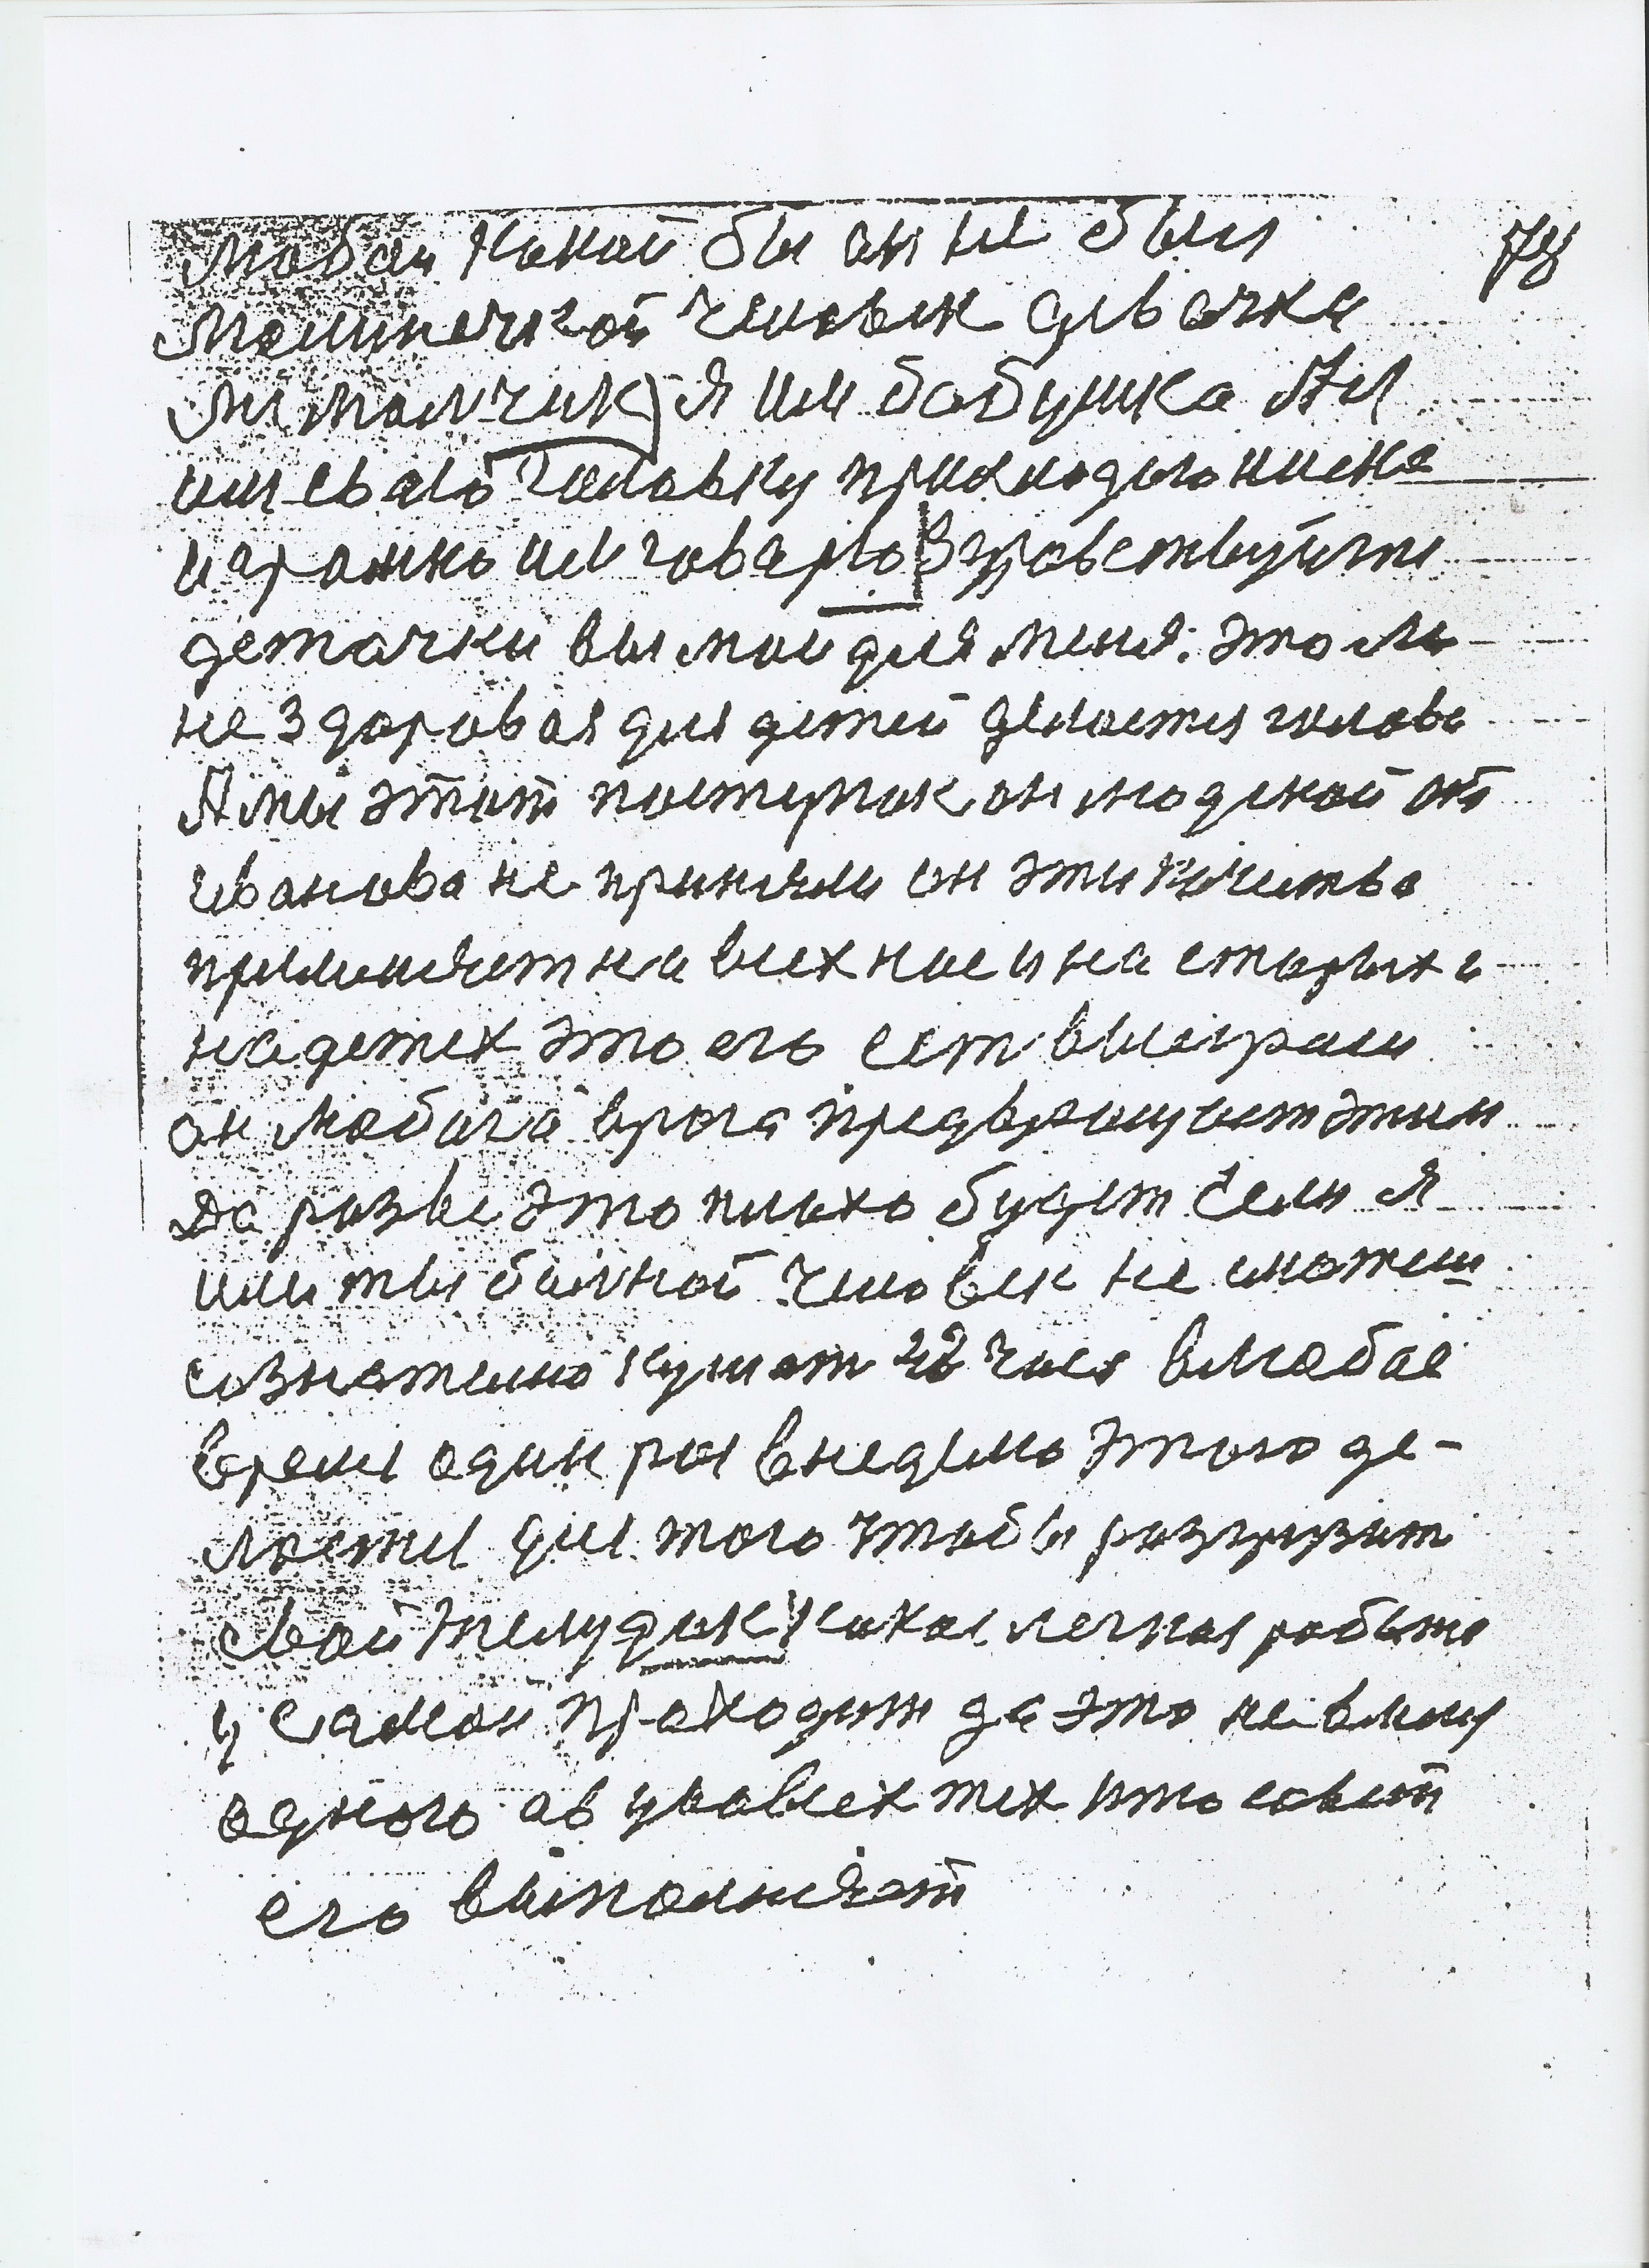 78
любой какой бы он не был
малинечкой человек девачка
ли малчик) я им бабушка
им сваю галовку приклоняю низко
и громко им говарю Здравствуйти
деточки вы мои для меня. это ли
не здоровая для детей делается
А мы этот поступок людской от
иванова не приняли он эти качества
применяет на всех нас и на старых и
на детях это его ест выиграш
он любога врага этим
да разве это плохо будет если я
или ты болной человек не сможеш
сознателно кушат 42 часа в любое
время один раз в неделю этого де-
лается для того чтобы разгрузит
свой желудик какая легкая работа
у самом проходит да это не в мену
одного ав у всех тех кто совет
его выполняет